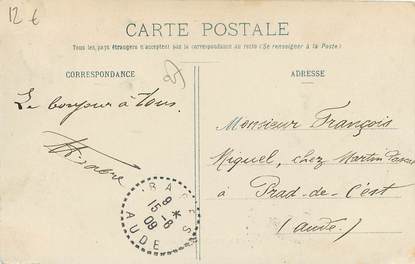 12 €
CARTE POSTALE
Tous les pays étrangers n'acceptent pas la correspondance au recto (Se renseigner à la Poste)
CORRESPONDANCE
ADRESSE
Le bonjour à tous.
Monsieur François
Miquel, chez Martin
à Prad-de-Cest
(Aude)
BAGES
9 * 
15 - 8
09
AUDE